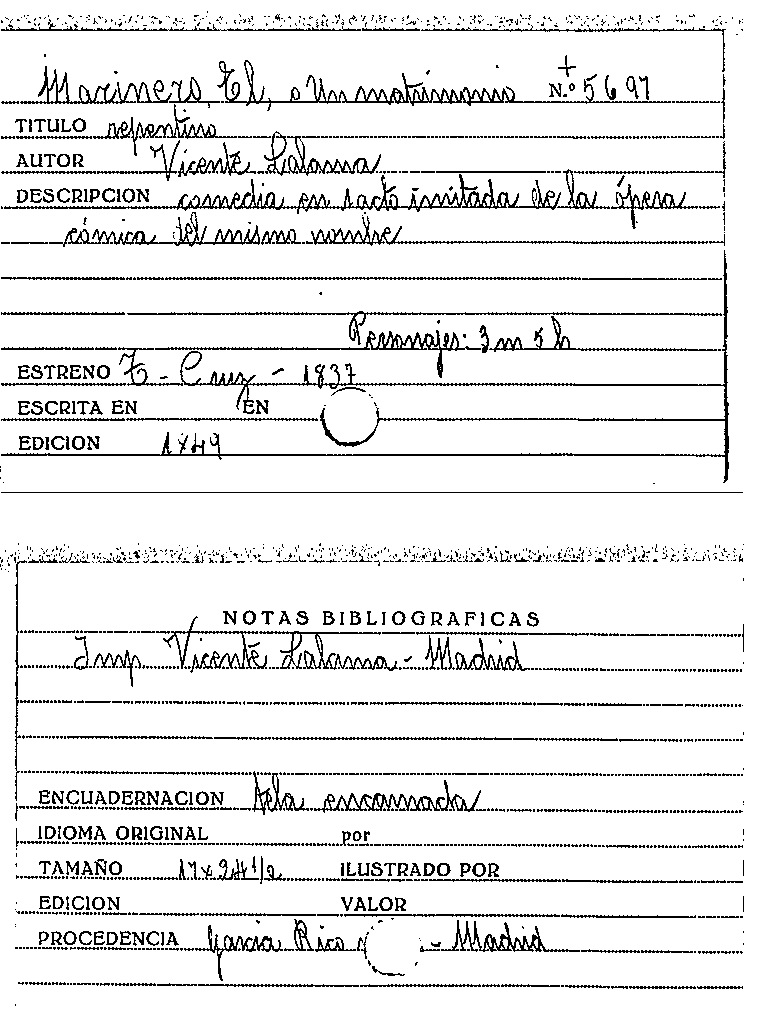 +
Marinero, El, o Un matrimonio N.º 5697
TITULO repentino
AUTOR Vicente Lalama
DESCRIPCION comedia en 1 acto imitada de la ópera
cómica del mismo nombre
Personajes: 3 m 5 h
ESTRENO T - Cruz - 1837
ESCRITA EN EN
EDICION 1849
NOTAS BIBLIOGRAFICAS
Imp. Vicente Lalama - Madrid
ENCUADERNACION tela encarnada
IDIOMA ORIGINAL por
TAMAÑO 17 x 24 1/2 ILUSTRADO POR
EDICION VALOR
PROCEDENCIA García Rico - Madrid